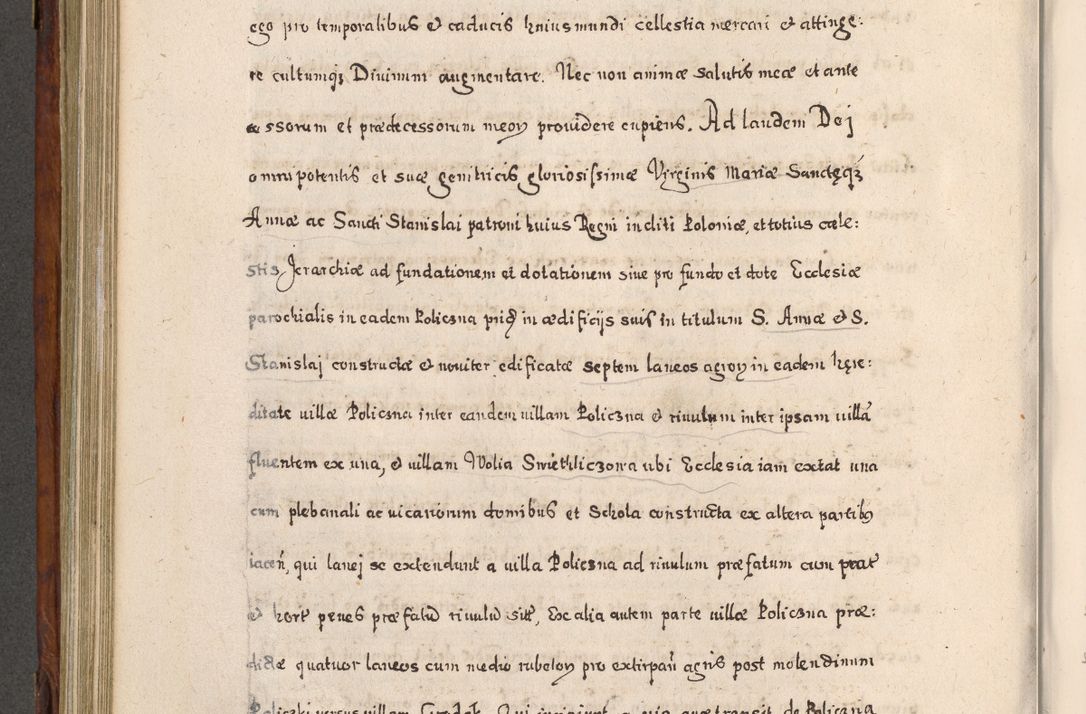 ego pro temporalibus & caducis huius mundi cellestia mercari & attinge:
re cultumq; Divinum augmentare. Nec non animæ salutis meæ et ante
cessorum et prædecessorum meoꝝ providere cupiens. Ad laudem Dej
omnipotentis et suæ genitricis gloriosissimæ Virginis Mariæ Sanctęq;
Annæ ac Sancti Stanislai patroni huius Regni incliti Poloniæ, et totius cæle:
stis Jerarchiæ ad fundationem et dotationem sive pro fundo et dote Ecclesiæ
parochialis in eadem Policzna in ædificijs suis in titulum S. Annæ & S.
Stanislaj constructæ & noviter edificatæ septem laneos agroꝝ in eadem hęre:
ditate villæ Policzna inter eandem villam Policzna & rivulum inter ipsam villā
fluentem ex una, & villam Wolia Swiethliczowa ubi Ecclesia iam extat una
cum plebanali ac vicariorum domibus et Schola constructa ex altera partibꝰ
iaceñ, qui lanej se extendunt a villa Policzna ad rivulum præfatum cum prat
& hort penes præfatū rivulū sit, Ex alia autem parte villæ Policzna præ:
dictæ quatuor laneos cum medio rubetoꝝ pro extirpañ agris post molendinum
Policzki versus villam Grodek. Qui incipiunt a via quæ transit de Policzna